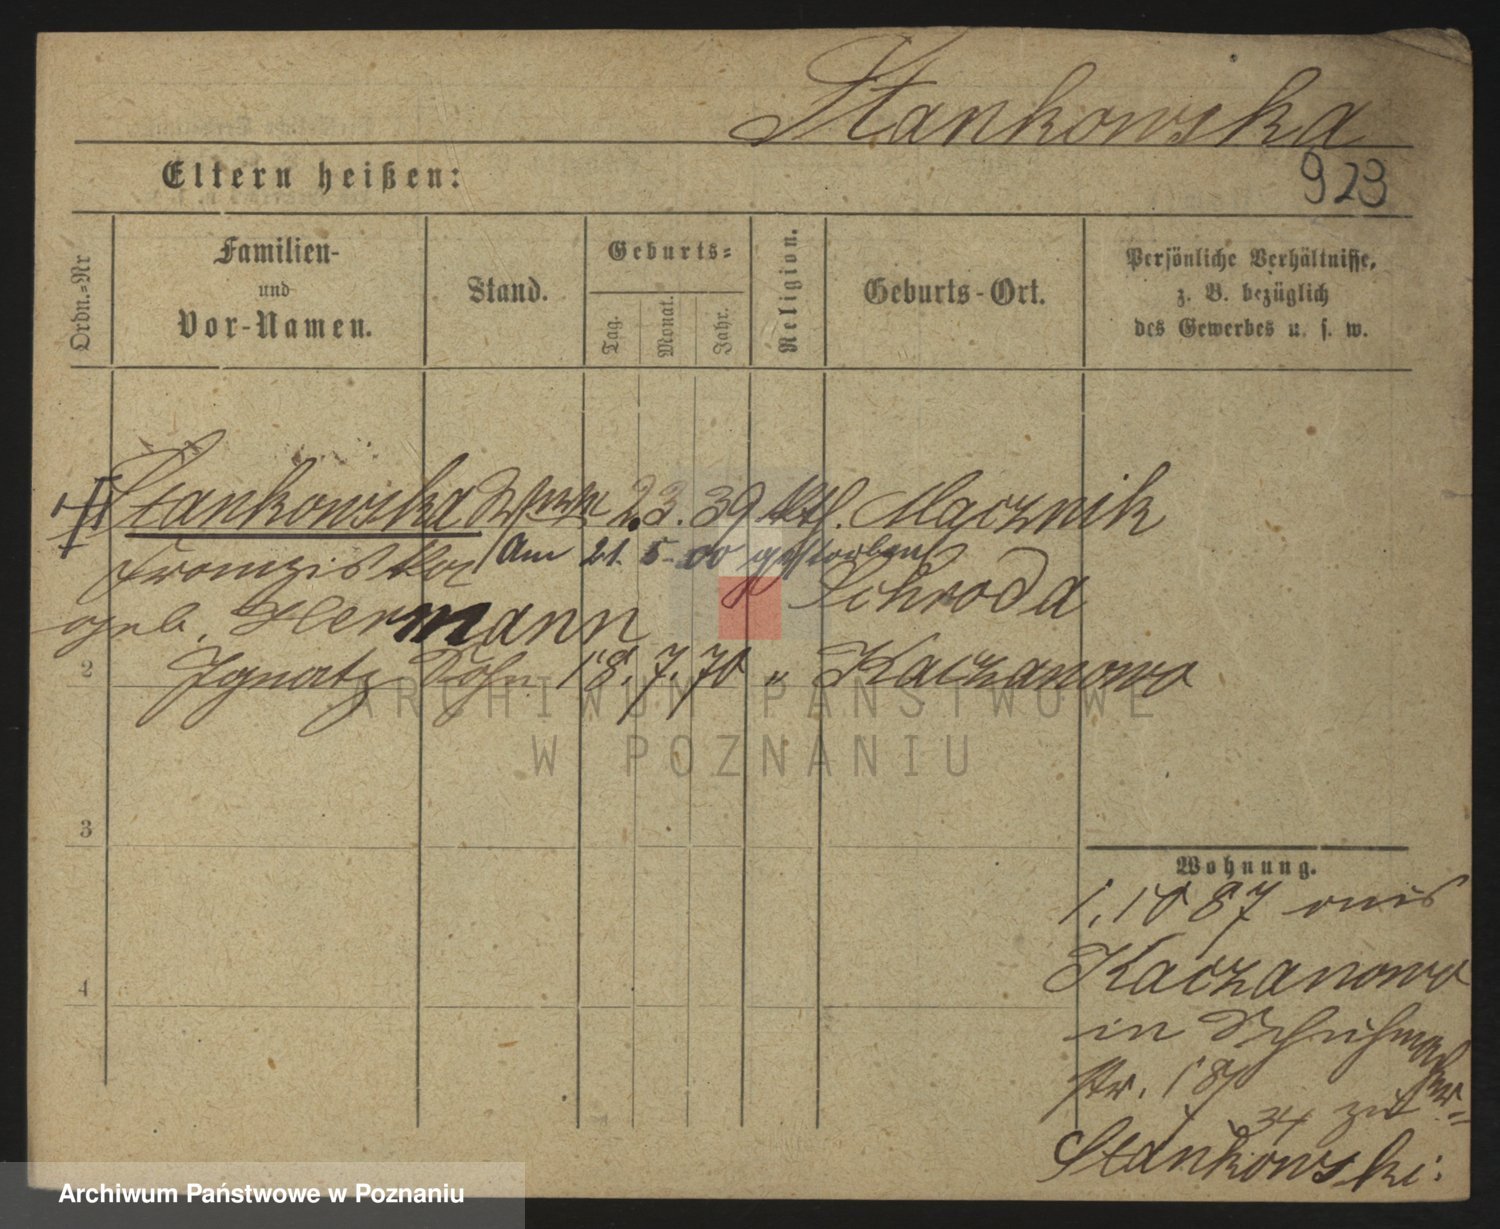 Stankowska
923
Eltern heißen:
Ordn.-Nr
Familien-
und
Vor-Namen.
Stand.
Geburts-
Tag.
Monat.
Jahr.
Religion.
Geburts-Ort.
Persönliche Verhältnisse,
z. B. bezüglich
des Gewerbes u. s. w.
Stankowska 2.3.39 kth. Mącznik
Franziska Am 21. 5. 00 gestorben
Schroda
geb. Hermann
2 Ignatz Sohn 18.7.70 " Kaczanowo
3
4
Wohnung.
1.10 87 aus
Kaczanowo
in Schuhmacher-
str. 18
34 zu
Stankowski.
ARCHIWUM PAŃSTWOWE
W POZNANIU
Archiwum Państwowe w Poznaniu